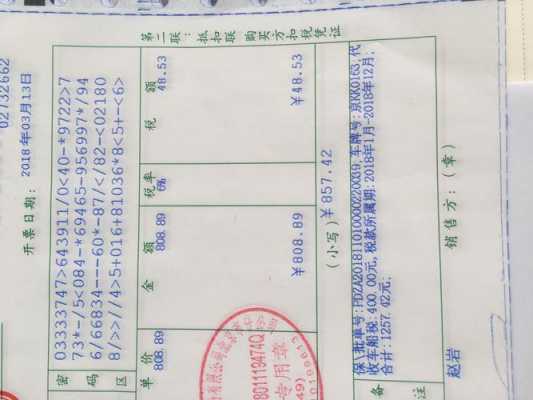 02732662
开票日期: 2018年03月13日
密码区
03333747>643911/0<40-*9722>7
73*-/5<084-*69465-956997*/94
6/66834---60*-87/</82-<02180
8/>>//4>5+016+81036*8<5+-<6>
单价 金额 税率 税额
808.89 808.89 6% 48.53
¥808.89 ¥48.53
(小写) ¥857.42
801119474Q
专用章
备注
保(批)单号: PDZA201811010000220039, 车牌号: 京KK0163, 代
收车船税: 400.00元, 税款所属期: 2018年1月-2018年12月;
合计: 1257.42元;
赵岩
销售方: (章)
第二联: 抵扣联 购买方扣税凭证